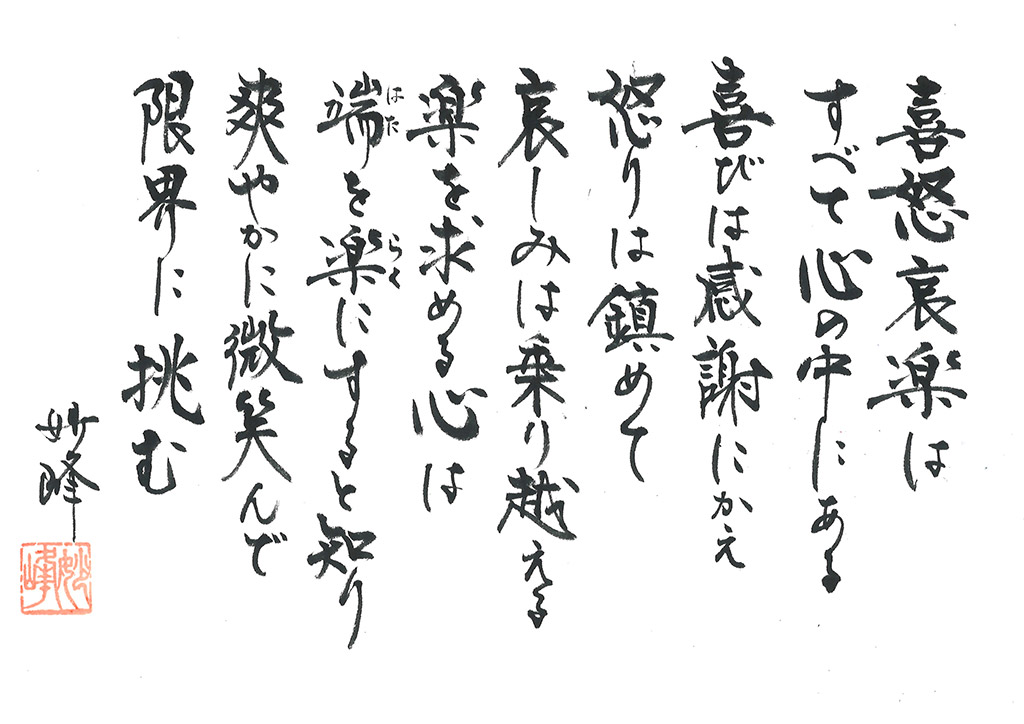 喜怒哀楽は
すべて心の中にある
喜びは感謝にかえ
怒りは鎮めて
哀しみは乗り越える
楽を求める心は
端を楽にすると知り
はた
らく
爽やかに微笑んで
限界に挑む
妙峰
妙峰